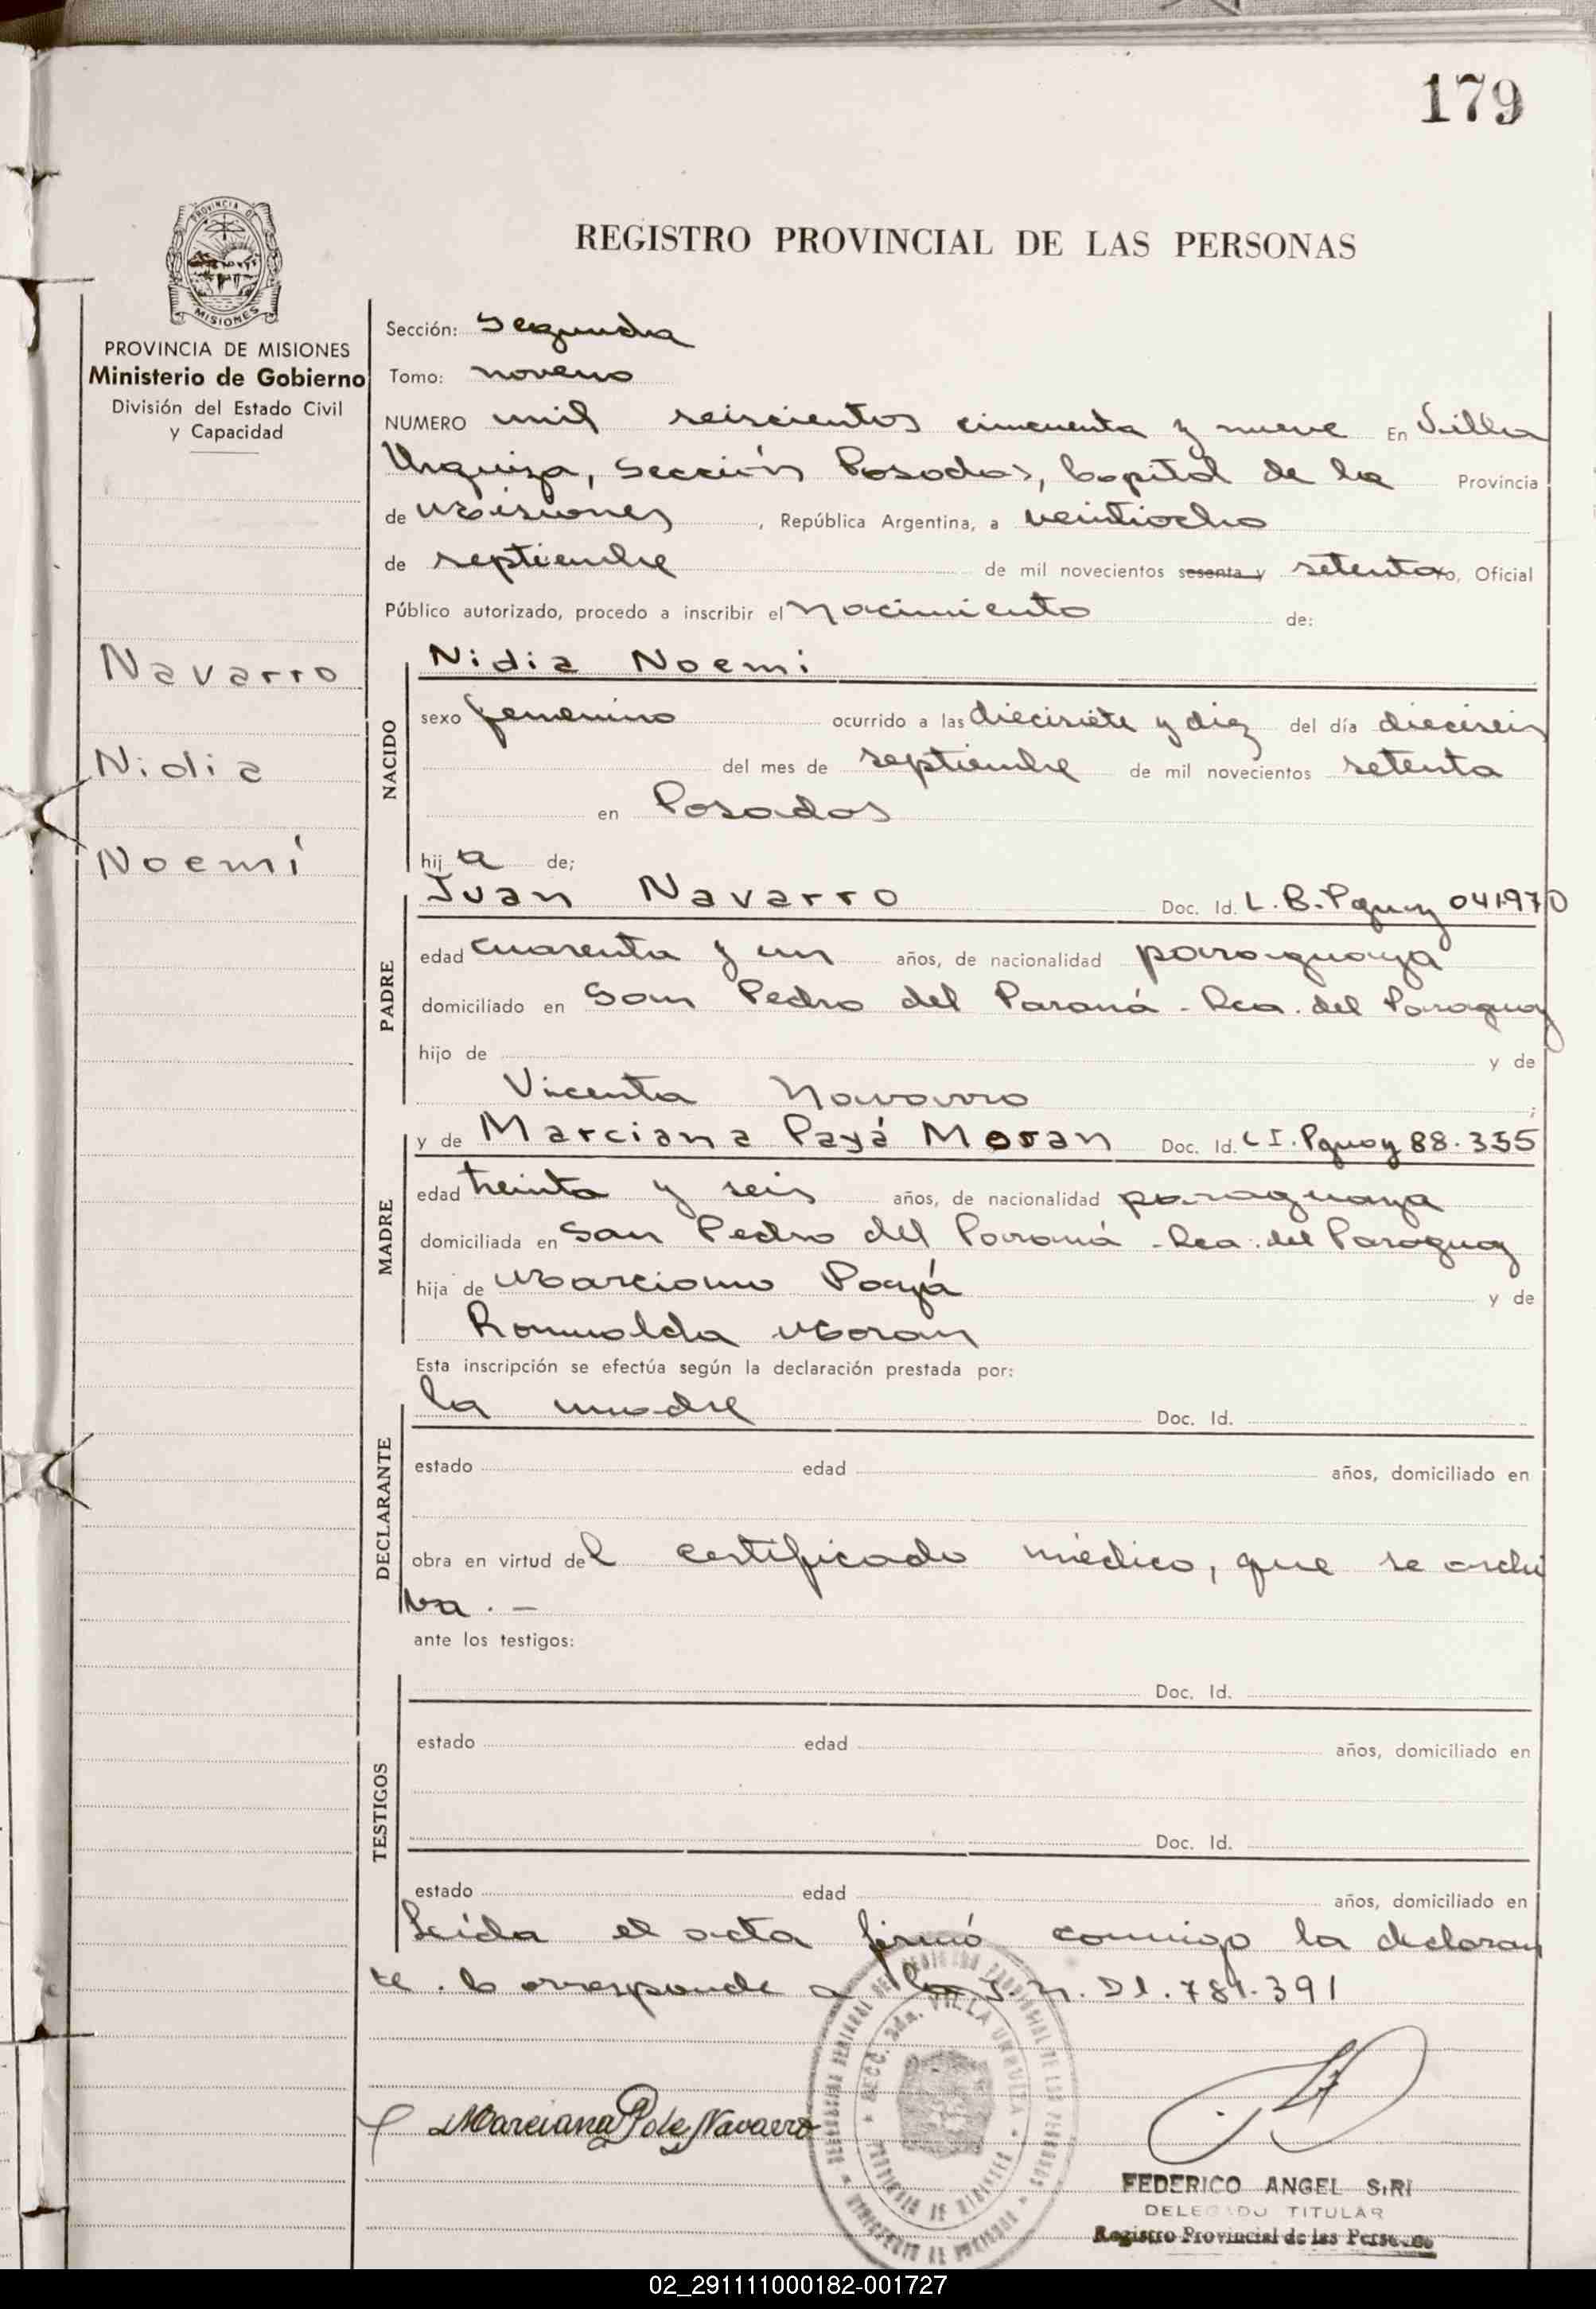 179
PROVINCIA DE
MISIONES
REGISTRO PROVINCIAL DE LAS PERSONAS
PROVINCIA DE MISIONES
Ministerio de Gobierno
División del Estado Civil
y Capacidad
Navarro
Nidia
Noemí
Sección: Segunda
Tomo: noveno
NUMERO mil seiscientos cincuenta y nueve En Villa
Urquiza, sección Posadas, Capital de la Provincia
de Misiones, República Argentina, a veintiocho
de septiembre de mil novecientos sesenta y setenta yo, Oficial
Público autorizado, procedo a inscribir el Nacimiento de:
NACIDO
Nidia Noemi
sexo femenino ocurrido a las diecisiete y diez del día dieciseis
del mes de septiembre de mil novecientos setenta
en Posadas
hij a de;
PADRE
Juan Navarro Doc. Id. L. B. Pguay 041970
edad cuarenta y un años, de nacionalidad paraguaya
domiciliado en San Pedro del Paraná - Rca. del Paraguay
hijo de y de
Vicenta Navarro ;
MADRE
y de Marciana Payá Moran Doc. Id. C I. Pguay 88.355
edad treinta y seis años, de nacionalidad paraguaya
domiciliada en San Pedro del Paraná - Rca. del Paraguay
hija de Marciano Payá y de
Romualda Moran
Esta inscripción se efectúa según la declaración prestada por:
DECLARANTE
la madre Doc. Id.
estado edad años, domiciliado en
obra en virtud del certificado médico, que se archi
va. -
ante los testigos:
TESTIGOS
Doc. Id.
estado edad años, domiciliado en
Doc. Id.
estado edad años, domiciliado en
Leída el acta firmó conmigo la declaran
te. Corresponde a la I.N. 21.781.391
SECC. 2da. VILLA URQUIZA
PROVINCIA DE MISIONES
Marciana P de Navarro
FEDERICO ANGEL SIRI
DELEGADO TITULAR
Registro Provincial de las Personas
02_291111000182-001727